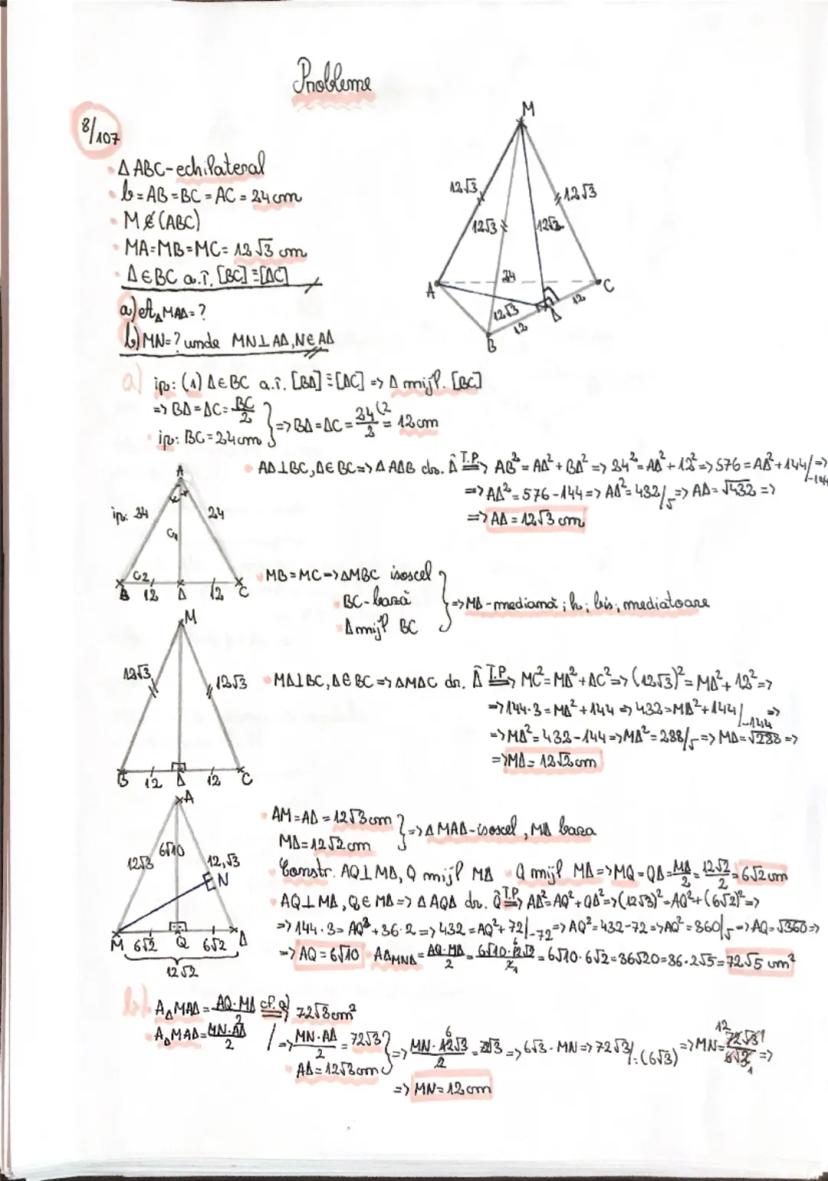 Probleme
8/107
M
Δ ABC-echilateral
b=AB=BC=AC=24cm
M∉(ABC)
MA=MB=MC=12√3 cm
Δ∈BC a.î. [BC]≡[ΔC]
a) A△MAΔ=?
b) MN=? unde MN⊥AΔ, N∈AΔ
12√3
12√3
12√3
12√2
24
A
C
12√3
12
12
Δ
B
a) ip: (1) Δ∈BC a.î. [BΔ]≡[ΔC] => Δ mijl. [BC]
=> BΔ=ΔC=BC/2
ip: BC=24cm } => BΔ=ΔC=24/2=12cm
AΔ⊥BC, Δ∈BC => ΔAΔB dr. Δ̂ T.P.=> AB²=AΔ²+BΔ² => 24²=AΔ²+12² => 576=AΔ²+144/-144 =>
=> AΔ²=576-144 => AΔ²=432/√ => AΔ=√432 =>
=> AΔ=12√3 cm
A
ip: 24
24
C1
C2
B 12 Δ 12 C
MB=MC => ΔMBC isoscel
BC-bază
Δ mijl BC } => MΔ-mediană; h; bis; mediatoare
M
12√3
12√3
B 12 Δ 12 C
MΔ⊥BC, Δ∈BC => ΔMΔC dr. Δ̂ T.P.=> MC²=MΔ²+ΔC² => (12√3)²=MΔ²+12² =>
=> 144·3=MΔ²+144 => 432=MΔ²+144/-144 =>
=> MΔ²=432-144 => MΔ²=288/√ => MΔ=√288 =>
=> MΔ=12√2cm
A
12√3
6√10
12√3
N
M 6√2 Q 6√2 Δ
12√2
AM=AΔ=12√3cm
MΔ=12√2cm } => ΔMAΔ-isoscel, MΔ baza
Constr. AQ⊥MΔ, Q mijl MΔ Q mijl MΔ => MQ=QΔ=MΔ/2=12√2/2=6√2cm
AQ⊥MΔ, Q∈MΔ => ΔAQΔ dr. Q̂ T.P.=> AΔ²=AQ²+QΔ² => (12√3)²=AQ²+(6√2)² =>
=> 144·3=AQ²+36·2 => 432=AQ²+72/-72 => AQ²=432-72 => AQ²=360/√ => AQ=√360 =>
=> AQ=6√10 AΔMNΔ=AQ·MΔ/2=6√10·12√2/2=6√10·6√2=36√20=36·2√5=72√5 cm²
b) A△MAΔ=AQ·MΔ/2 cf. a)=> 72√3cm²
A△MAΔ=MN·AΔ/2
=> MN·AΔ/2=72√3
AΔ=12√3cm } => MN·12√3/2=72√3 => 6√3·MN => 72√3/:(6√3) => MN=72√3/6√3 =>
=> MN=12cm